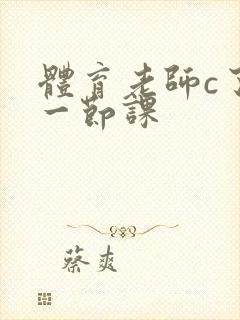 體育老師c了
一節課
蔡爽